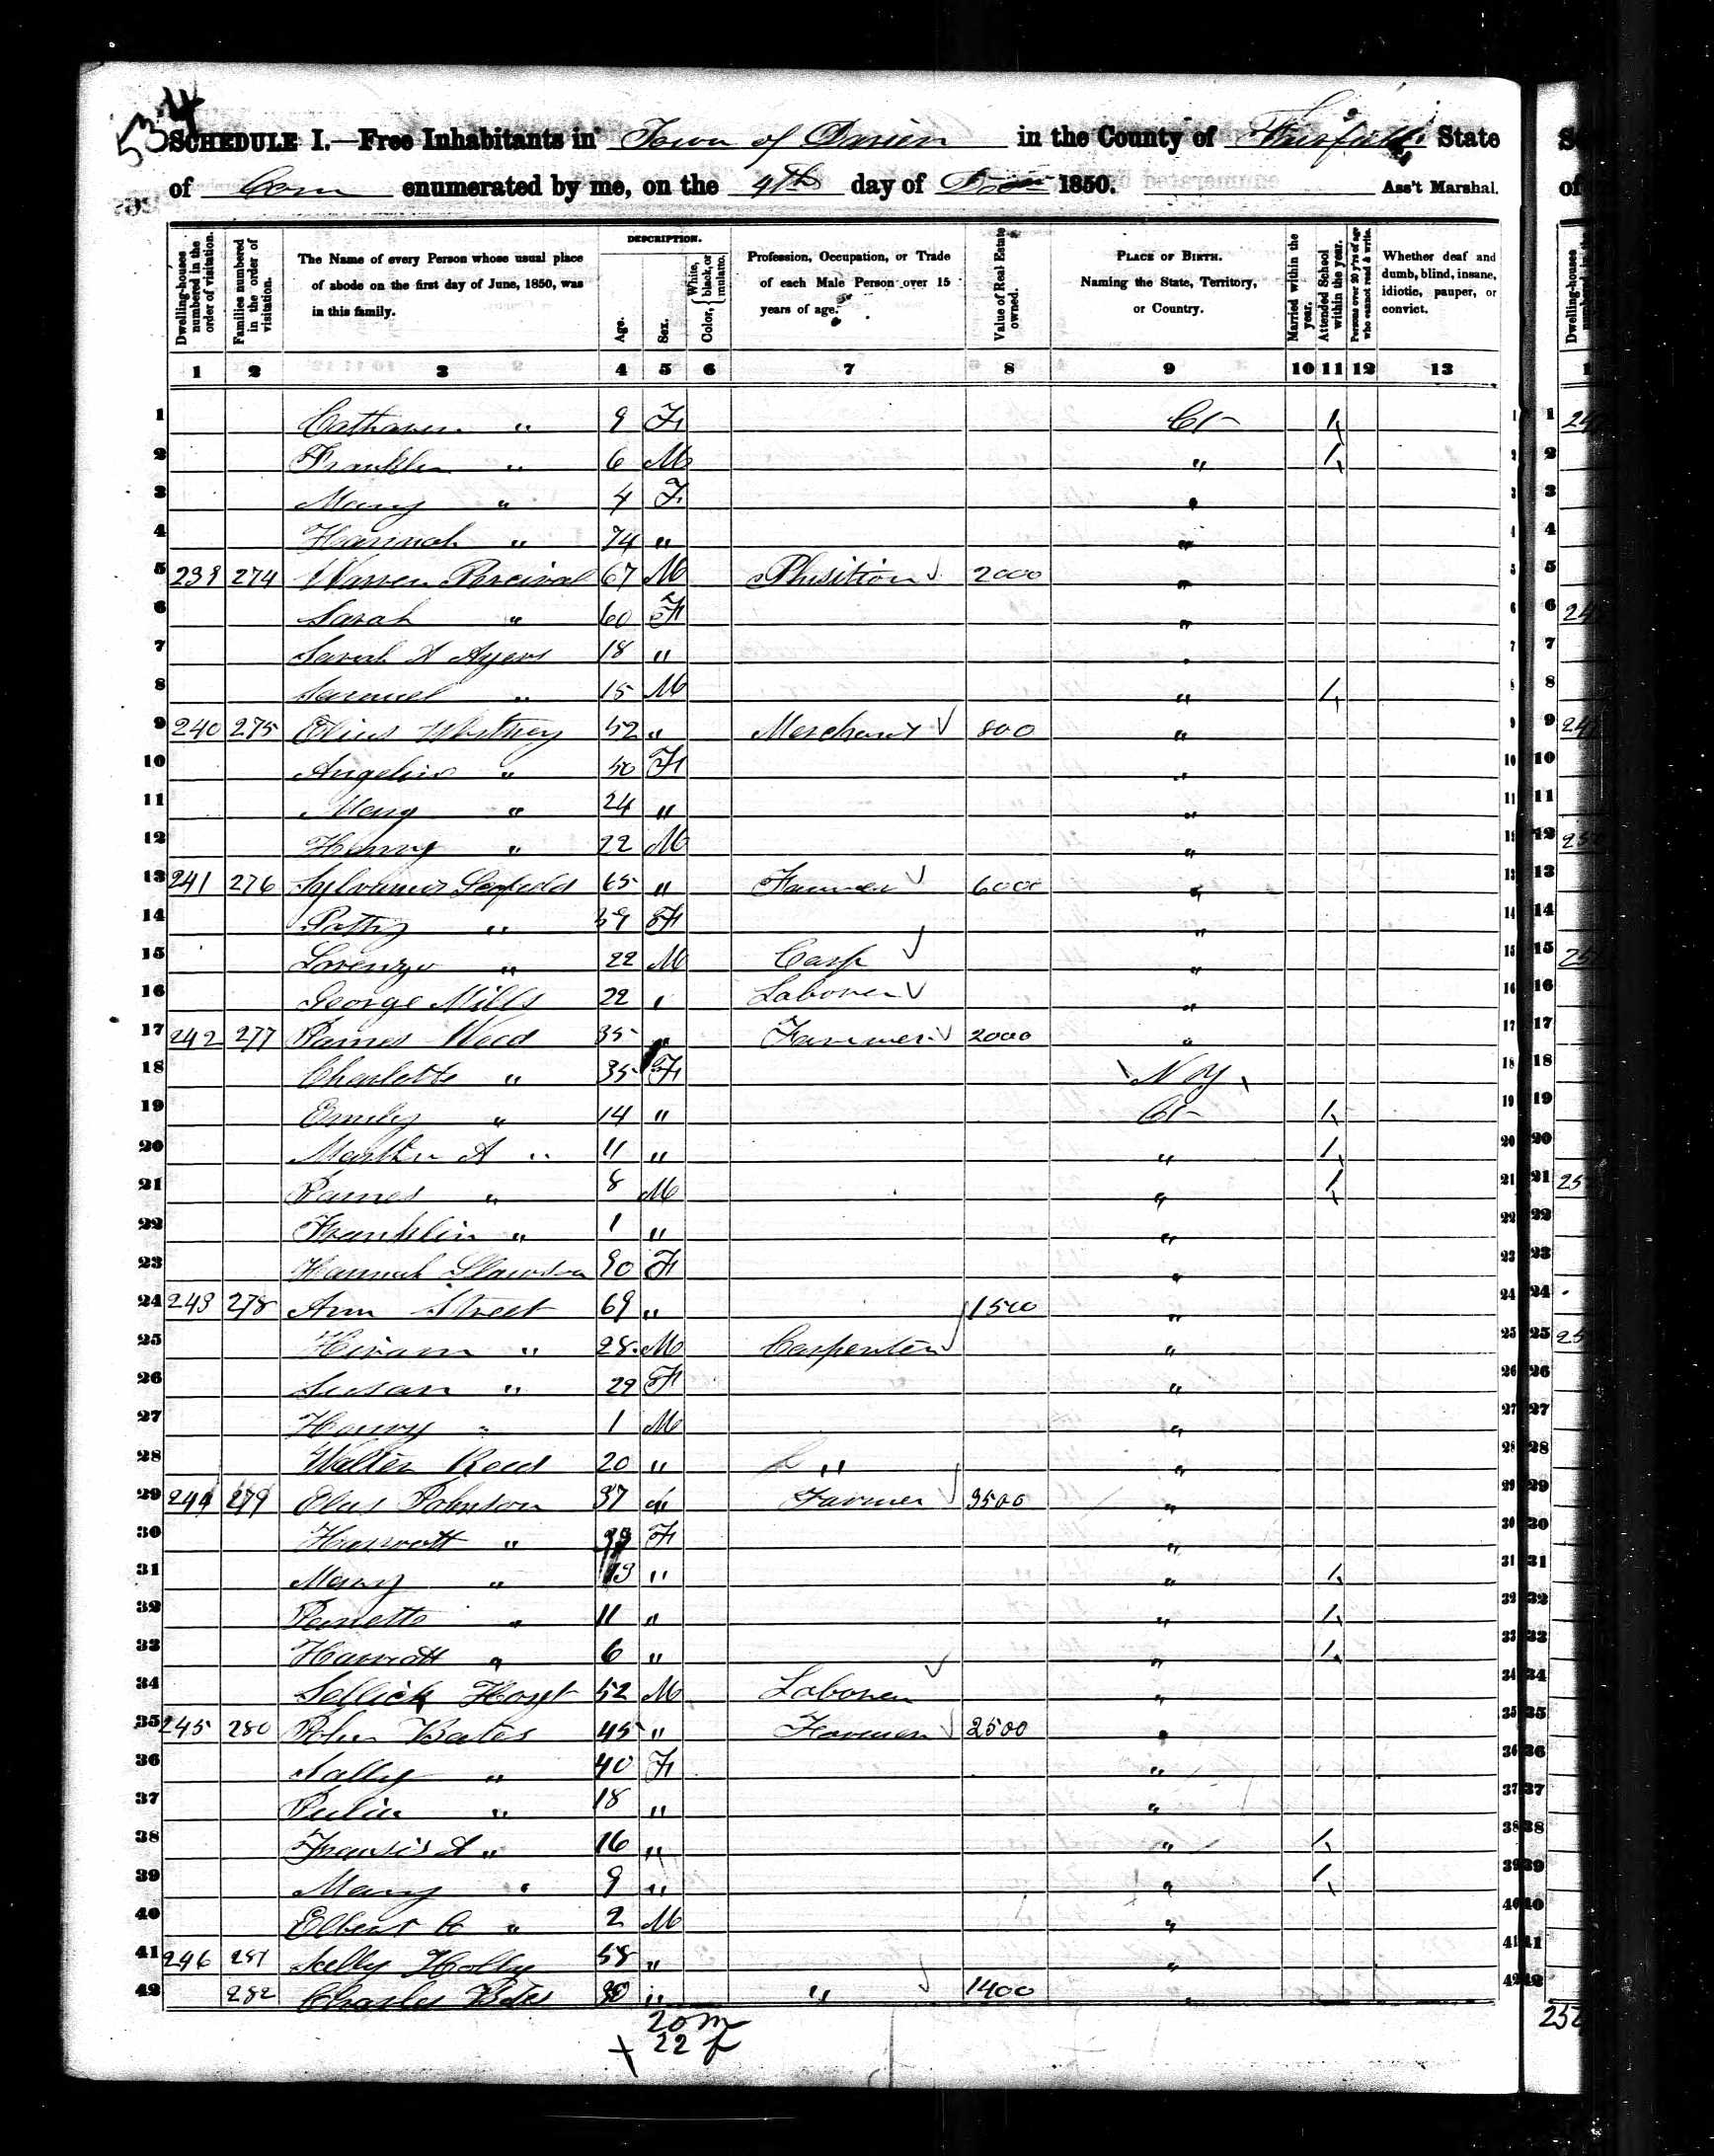 534
SCHEDULE I.—Free Inhabitants in Town of Darien in the County of Fairfield State
of Conn enumerated by me, on the 4th day of 1850. Ass't Marshal.
Dwelling-houses numbered in the order of visitation.
Families numbered in the order of visitation.
The Name of every Person whose usual place of abode on the first day of June, 1850, was in this family.
DESCRIPTION.
Age.
Sex.
Color, { White, black, or mulatto.
Profession, Occupation, or Trade of each Male Person over 15 years of age.
Value of Real Estate owned.
PLACE OF BIRTH. Naming the State, Territory, or Country.
Married within the year.
Attended School within the year.
Persons over 20 y'rs of age who cannot read & write.
Whether deaf and dumb, blind, insane, idiotic, pauper, or convict.
1 2 3 4 5 6 7 8 9 10 11 12 13
1 " 9 F Ct 1
2 Franklin " 6 M " 1
3 Mary " 4 F "
4 Hannah " 74 " "
5 239 274 Warren Percival 67 M Phisition 2000 "
6 Sarah " 60 F "
7 Sarah A Ayers 18 " "
8 Samuel " 15 M " 1
9 240 275 Whitney 52 " Merchant 800 "
10 Angelin " 50 F "
11 Mary " 24 " "
12 Henry " 22 M "
13 241 276 65 " Farmer 6000 "
14 Patty " 59 F "
15 Lorenzo " 22 M Carp "
16 George Mills 22 " Laborer "
17 242 277 James Weed 35 " Farmer 2000 "
18 Charlotte " 35 F N Y
19 Emily " 14 " Ct 1
20 Martha A " 11 " " 1
21 James " 8 M " 1
22 Franklin " 1 " "
23 Hannah 90 F "
24 243 278 Ann Street 69 " 1500 "
25 Hiram " 28 M Carpenter "
26 Susan " 29 F "
27 " 1 M "
28 Walter Reed 20 " " "
29 244 279 Johnson 37 " Farmer 3500 "
30 " F "
31 Mary " 13 " " 1
32 " 11 " " 1
33 Harriott " 6 " " 1
34 Sellick Hoyt 52 M Laborer "
35 245 280 John Bates 45 " Farmer 2500 "
36 Sally " 40 F "
37 Julia " 18 " "
38 Fransis A " 16 " " 1
39 Mary " 9 " " 1
40 Elbert C " 2 M "
41 246 281 Holly 58 " "
42 282 Charles " " 1400 "
20 m
22 f